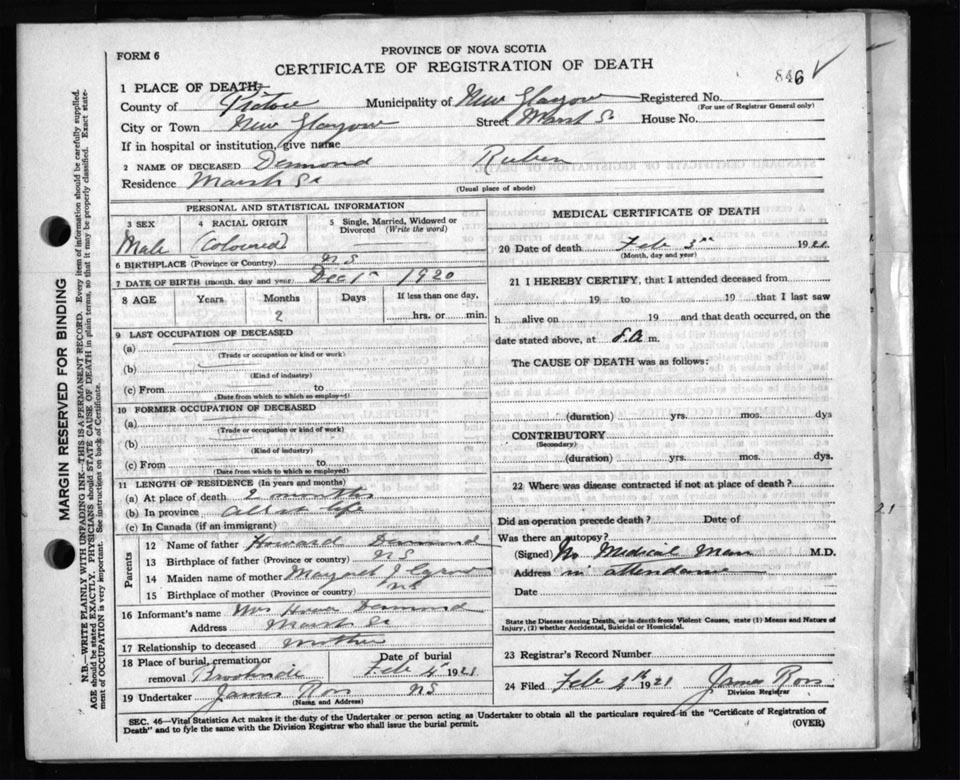 FORM 6
PROVINCE OF NOVA SCOTIA
CERTIFICATE OF REGISTRATION OF DEATH
846
1 PLACE OF DEATH—
County of Pictou Municipality of New Glasgow Registered No.
(For use of Registrar General only)
City or Town New Glasgow Street Marsh St House No.
If in hospital or institution, give name
2 NAME OF DECEASED Desmond Ruben
Residence Marsh St
(Usual place of abode)
PERSONAL AND STATISTICAL INFORMATION
3 SEX 4 RACIAL ORIGIN 5 Single, Married, Widowed or Divorced (Write the word)
Male (Coloured)
6 BIRTHPLACE (Province or Country) N S
7 DATE OF BIRTH (month, day and year) Dec 1st 1920
8 AGE Years Months Days If less than one day,
2 hrs. or min.
9 LAST OCCUPATION OF DECEASED
(a)
(Trade or occupation or kind or work)
(b)
(Kind of industry)
(c) From to
(Date from which to which so employed)
10 FORMER OCCUPATION OF DECEASED
(a)
(Trade or occupation or kind of work)
(b)
(Kind of industry)
(c) From to
(Date from which to which so employed)
11 LENGTH OF RESIDENCE (In years and months)
(a) At place of death 2 months
(b) In province all its life
(c) In Canada (if an immigrant)
Parents
12 Name of father Howard Desmond
13 Birthplace of father (Province or country) N S
14 Maiden name of mother Margaret J
15 Birthplace of mother (Province or country) N S
16 Informant's name Mrs Desmond
Address Marsh St
17 Relationship to deceased mother
18 Place of burial, cremation or removal Brookside Date of burial Feb 4th 1921
19 Undertaker James Ross N S
(Name and Address)
MEDICAL CERTIFICATE OF DEATH
20 Date of death Feb 3rd 1921
(Month, day and year)
21 I HEREBY CERTIFY, that I attended deceased from
19 to 19 that I last saw
h alive on 19 and that death occurred, on the
date stated above, at A m.
The CAUSE OF DEATH was as follows:
(duration) yrs. mos. dys
CONTRIBUTORY
(Secondary)
(duration) yrs. mos. dys.
22 Where was disease contracted if not at place of death?
Did an operation precede death? Date of
Was there an autopsy?
(Signed) No Medical Man M.D.
Address in attendance
Date
State the Disease causing Death, or in death from Violent Causes, state (1) Means and Nature of
Injury, (2) whether Accidental, Suicidal or Homicidal.
23 Registrar's Record Number
24 Filed Feb 4th 1921 James Ross
Division Registrar
SEC. 46—Vital Statistics Act makes it the duty of the Undertaker or person acting as Undertaker to obtain all the particulars required in the "Certificate of Registration of
Death" and to fyle the same with the Division Registrar who shall issue the burial permit. (OVER)
MARGIN RESERVED FOR BINDING
N.B.—WRITE PLAINLY WITH UNFADING INK—THIS IS A PERMANENT RECORD. Every item of information should be carefully supplied.
AGE should be stated EXACTLY. PHYSICIANS should STATE CAUSE OF DEATH in plain terms, so that it may be properly classified. Exact statement of OCCUPATION is very important. See instructions on back of Certificate.
21